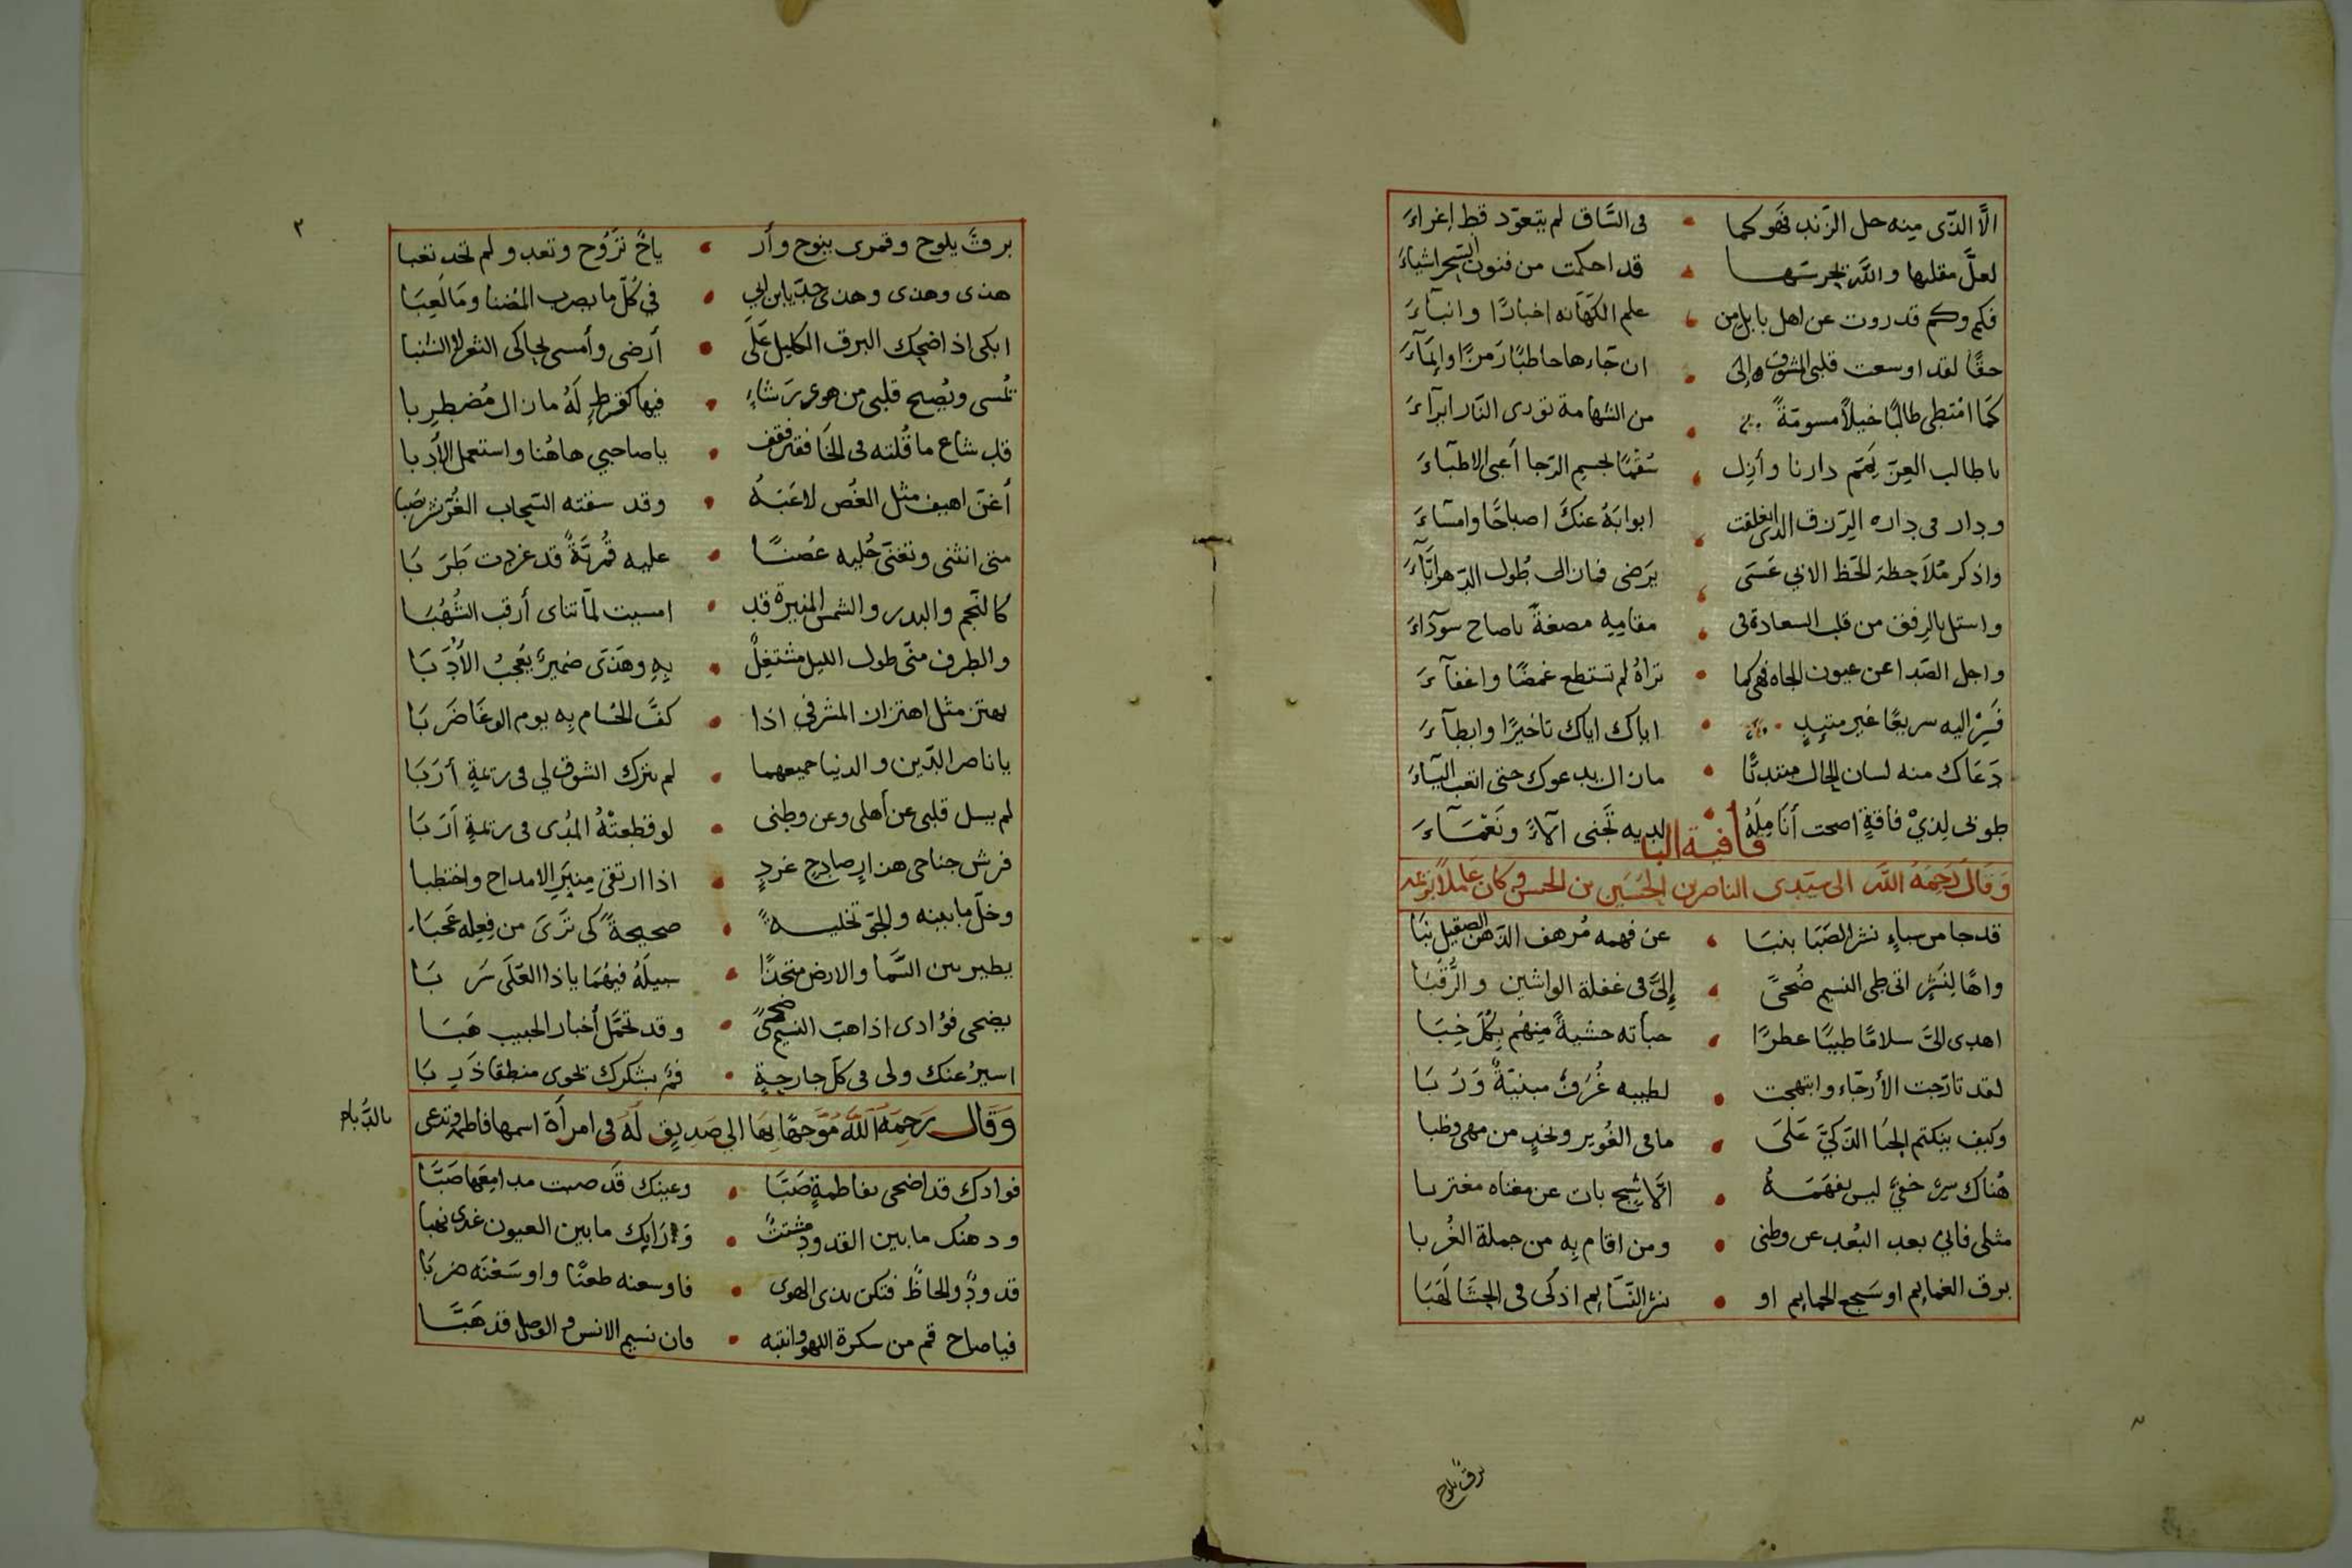 الَّا الذّى مِنه حل الزّند فهَو كما • فى السَّاق لم يتعوّد قط إغراءَ
لعلَّ مقلتها واللَّه يحرسَها • قد احكمت من فنون السّحر اشياءَ
فكم وكم قد روت عن اهل بابل من • علم الكهَانه اخبارًا وانبآءَ
حقًا لقد اوسعت قلبى المشوق الى • ان جَاءها خاطبًا رَمزًا وايمَآءَ
كمَا امْتطى طالبًا خيلًا مسومّةً • من الشهامة تورى النّار ابرآءَ
يا طالب العِزّ يَمّم دارنا وأزل • سُقمًا لجسم الرّجا أعيى الاطبّاءَ
ودار فى داره الرّزق الذى انغلقت • ابوابَهُ عنكَ اصباحًا وامسَاءَ
واذكر مُلاَحظة الحَظ الابي عَسَى • يَرَضى فما زال طُول الدّهر ابّآءَ
واستل بالرفق من قلب السعادة فى • مقامِهِ مصغةً ياصاح سودَآءَ
واجل الصَدا عن عيون الجاه فهى كما • تراهُ لم تستطع غمضًا واغفآءَ
فَسِرْ اليه سريعًا غير متئِدٍ • اياك اياك تاخيرًا وابطآءَ
دَعَاك منه لسان الحال مبتدئًا • مازال يدعوك حتى اتعب اليآءَ
طوبى لِذيْ فاقةٍ اضحت أنَامِلُهُ • لديه تَجنى آلآءً ونَعْمَآءَ
قافية البا
وَقَالَ رَحِمَهُ اللَّه الى سيّدى الناصر بن الحُسَين بن الحسن وكان عَاملًا بوعمه
قد جا من سباءٍ نشر الصَبَا بنبَا • عن فهمه مُرهف الذّهن الصقيل نبَا
واهًا لِنَشْرٍ اتى طى النسيم ضُحىً • إلىَّ فى غفلة الواشين والرُّقبَا
اهدى الىَّ سلامًا طيبًا عطرًا • خبأته خشيةً مِنهُم بِكُلّ خِبَا
لقد تارّجت الأرجَاء وابتهجت • لطيبه غُرَفٌ مبنيّةٌ وَرُ بَا
وكيف ينكتم الخبَا الذّكىّ عَلَى • ما فى الغُوير ونجدٍ من مهى وظبا
هُناك سِرٌ خفىٌ ليس يفهَمَهُ • الَّا شَجٍ بات عن مغناه مغتربا
مثلى فانى بعد البُعد عن وطنى • ومن اقام بِه من جملة الغُربا
برق الغمايِم او سَجع الحمايم او • نشر النّسَايِم اذكى فى الحِشَا لَهَبَا
برق يلوح
٢
برقٌ يلوح وقمرى ينوح وأر • ياحٌ تَرُوح وتعدو لم تجد تعبا
هذى وهذى وهذى جدّ يا ابن ابى • في كُلّ ما يصرب المُضنا ومَا لَعِبَا
ابكى اذ اضحك البرق الكليل عَلَى • أرضى وأمسى يحاكى الثغر والشنبا
تمُسى ويُصبح قلبى من هوى رَشاءٍ • فيها كقرطٍ لَهُ مازال مُضطرِبا
قد شاع ما قُلته فى الخَافقَين فقف • ياصاحبي هاهُنا واستعمل الأدبا
أغنّ اهيف مثل الغُصن لاعَبَهُ • وقد سقته السّحاب الغُرّ نشر صَبا
متى انثنى وتغنّى حُليه غصنًا • عليه قُمريّةٌ قد غردت طَرَ بَا
كالنّجم والبدر والشمس المنيرة قد • امسيت لمّا تناى أرقب الشُهُبَا
والطرف منّى طول الليل مشتغِلٌ • بِه وهَذَى ضميرٌ يُعجبُ الأدُبَا
يهتز مثل اهتزاز المشرفي اذا • كفّ الحُسَام بِه يوم الوغَا ضَرَبَا
يا ناصر الدّين والدنيا جميعهما • لم يترك الشوق لي فى رتعةٍ أرَبَا
لم يسل قلبى عن أهلى وعن وطنى • لو قطعتْهُ المُدى فى رتعةٍ أرَبَا
فرش جناحى هزارٍ صادحٍ غردٍ • اذا ارتقى مِنبَرِ الامداح واختطبا
وخلّ ما بينه والجّو تخليــةً • صحيحةً كى تَرَىَ من فِعِله عَجَبَا
يطير بين السَّمَا والارض متخذًا • سبيلَهُ فيهُمَا ياذا العُلَى سَرَ بَا
يضحى فؤادى اذا هبّ النسيم ضحىً • وقد تحمَّل أخبار الحبيب هَبَا
اسيرُ عنك ولى فى كلّ جارحةٍ • فمٌ بشكرك تحوى منطقا ذَرِ بَا
وَقَال رَحِمَهُ اللَّهُ مُوَجهًا بِهَا الى صَديقٍ لَهُ فى امرأة اسمها فاطمة وتدعى
فوادك قد اضحى بفاطمةٍ صَبَّا • وعينك قد صبت مدامِعَها صَبَّا
وذهنك ما بين القدود مشتتٌ • وَرَايك ما بين العيون غدى نهبا
قدودٌ والحاظٌ فتكن بذى الهوى • فاوسعنه طعنًا واوسَعْنَه ضربَا
فياصاح قم من سكرة اللهو وانتبه • فان نسيم الانس والوصل قد هَبَّا